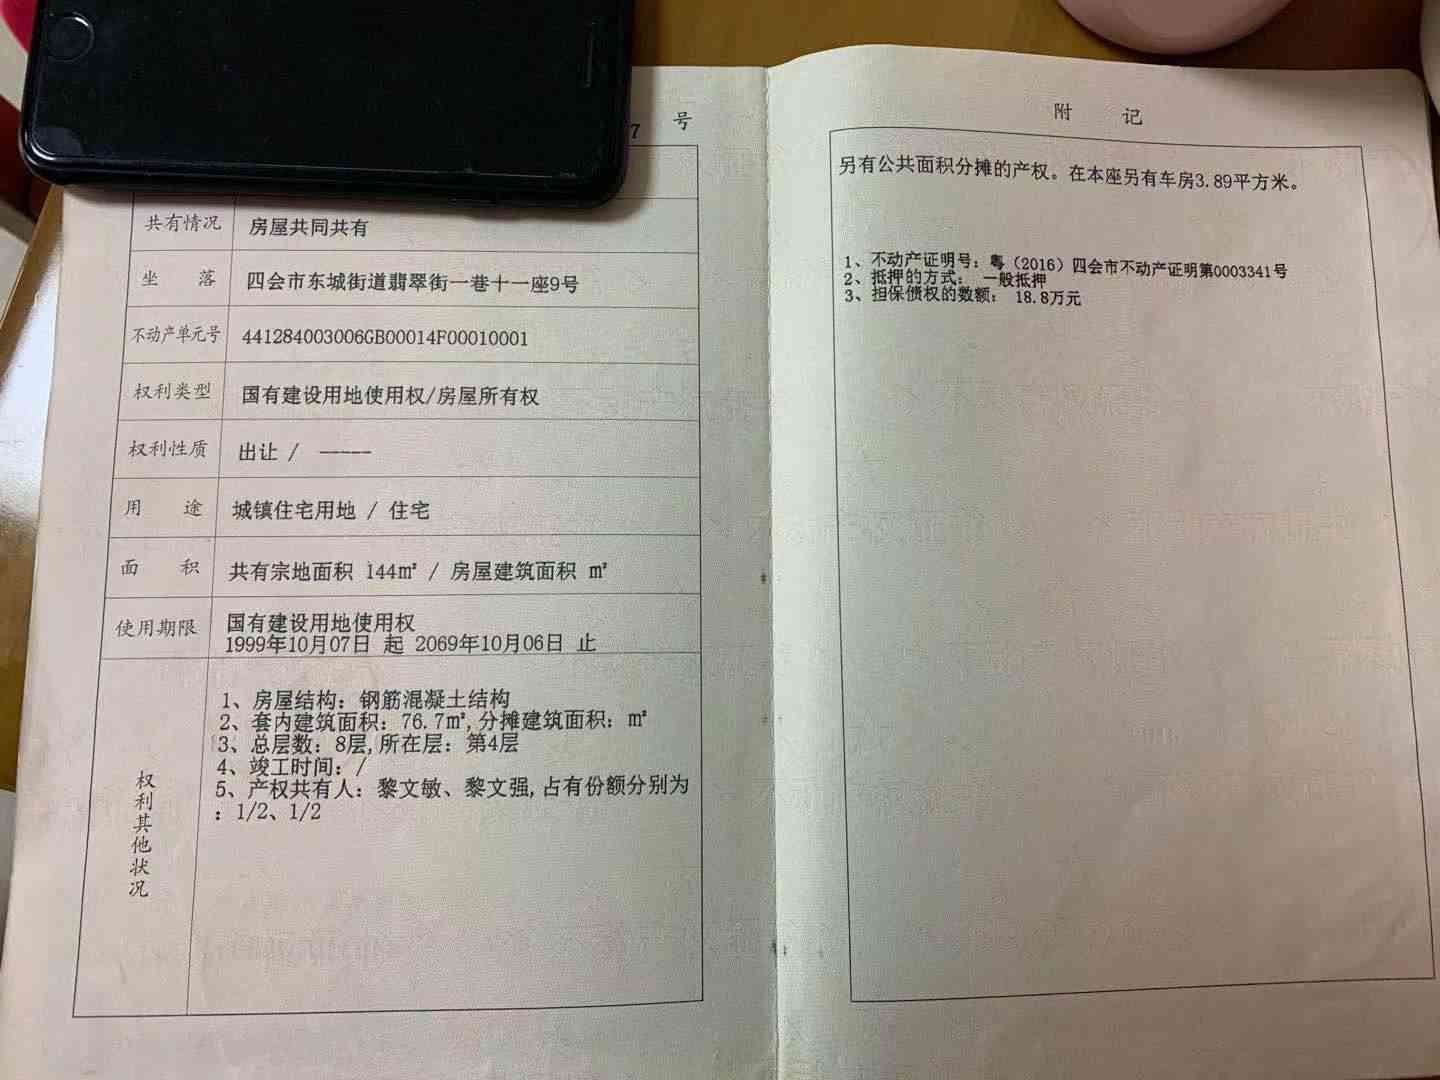 7 号
共有情况 房屋共同共有
坐 落 四会市东城街道翡翠街一巷十一座9号
不动产单元号 441284003006GB00014F00010001
权利类型 国有建设用地使用权/房屋所有权
权利性质 出让 / -----
用 途 城镇住宅用地 / 住宅
面 积 共有宗地面积 144㎡ / 房屋建筑面积 ㎡
使用期限 国有建设用地使用权
1999年10月07日 起 2069年10月06日 止
权利其他状况
1、房屋结构：钢筋混凝土结构
2、套内建筑面积：76.7㎡,分摊建筑面积：㎡
3、总层数：8层,所在层：第4层
4、竣工时间：/
5、产权共有人：黎文敏、黎文强,占有份额分别为
：1/2、1/2
附 记
另有公共面积分摊的产权。在本座另有车房3.89平方米。
1、不动产证明号：粤（2016）四会市不动产证明第0003341号
2、抵押的方式： 一般抵押
3、担保债权的数额： 18.8万元